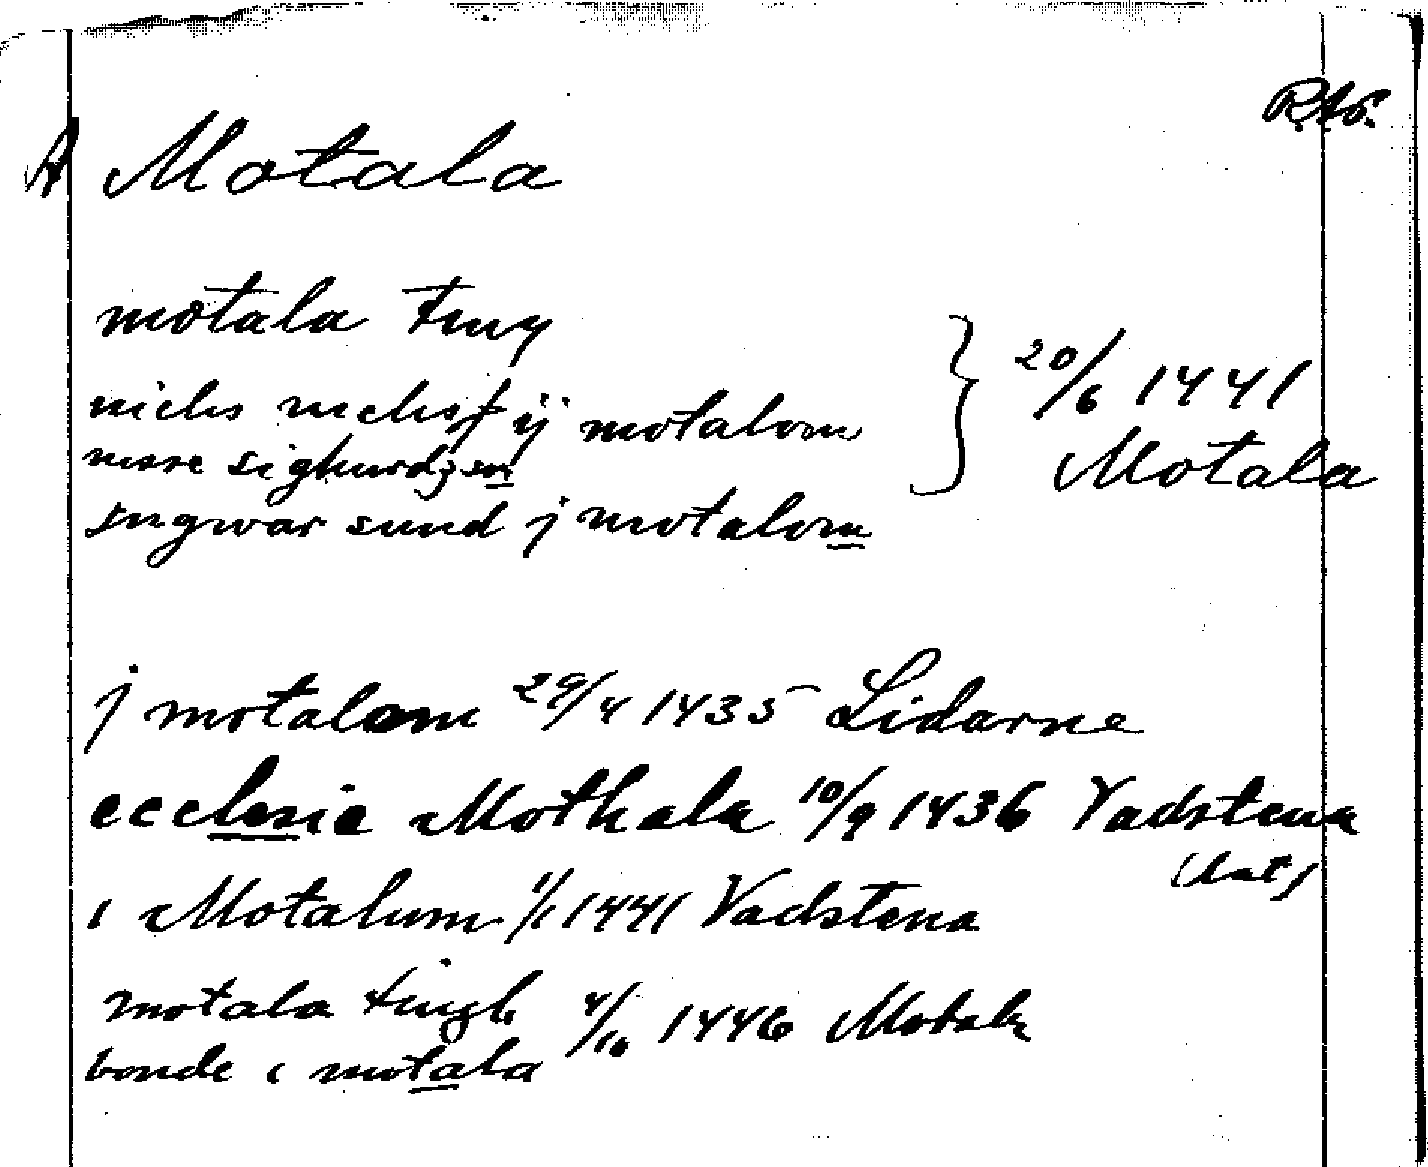 R.A.P.
A Motala
motala ting
niclis niclisſ ij motalom
nare sighurdzson
Ingwar sund j motalom
20/6 1441
Motala
j motalom 29/4 1435 Lidarne
ecclesie Mothala 10/9 1436 Vadstena
(Lat)
i Motalum 1/1 1441 Vadstena
motala tingh
bonde i motala
4/10 1446 Motala